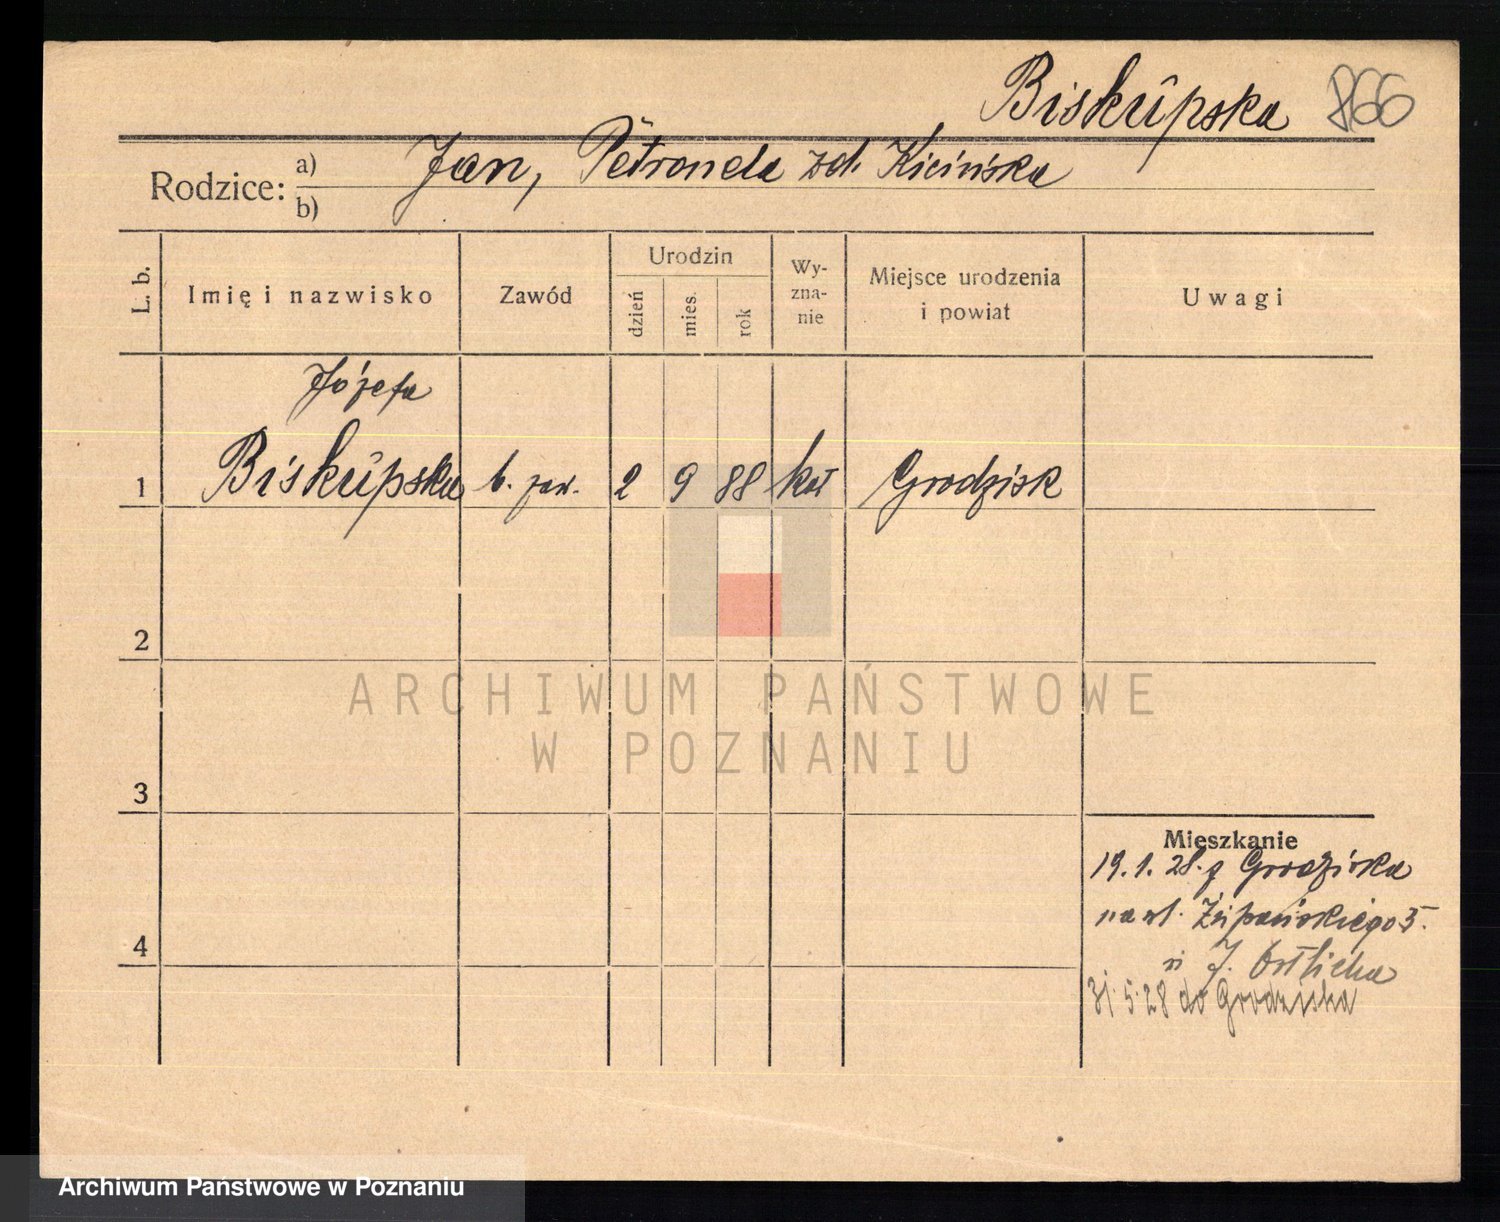 Biskupska 866
Rodzice: a) Jan, Petronela zd. Kicińska
b)
L. b. Imię i nazwisko Zawód Urodzin dzień mies. rok Wy-zna-nie Miejsce urodzenia i powiat Uwagi
Józefa
1 Biskupska b. zaw. 2 9 88 kat Grodzisk
2
ARCHIWUM PAŃSTWOWE
W POZNANIU
3
Mieszkanie
19.1.28. z Grodziska
na ul. Żupańskiego 5.
4
J.
31.5.28 do Grodziska
Archiwum Państwowe w Poznaniu